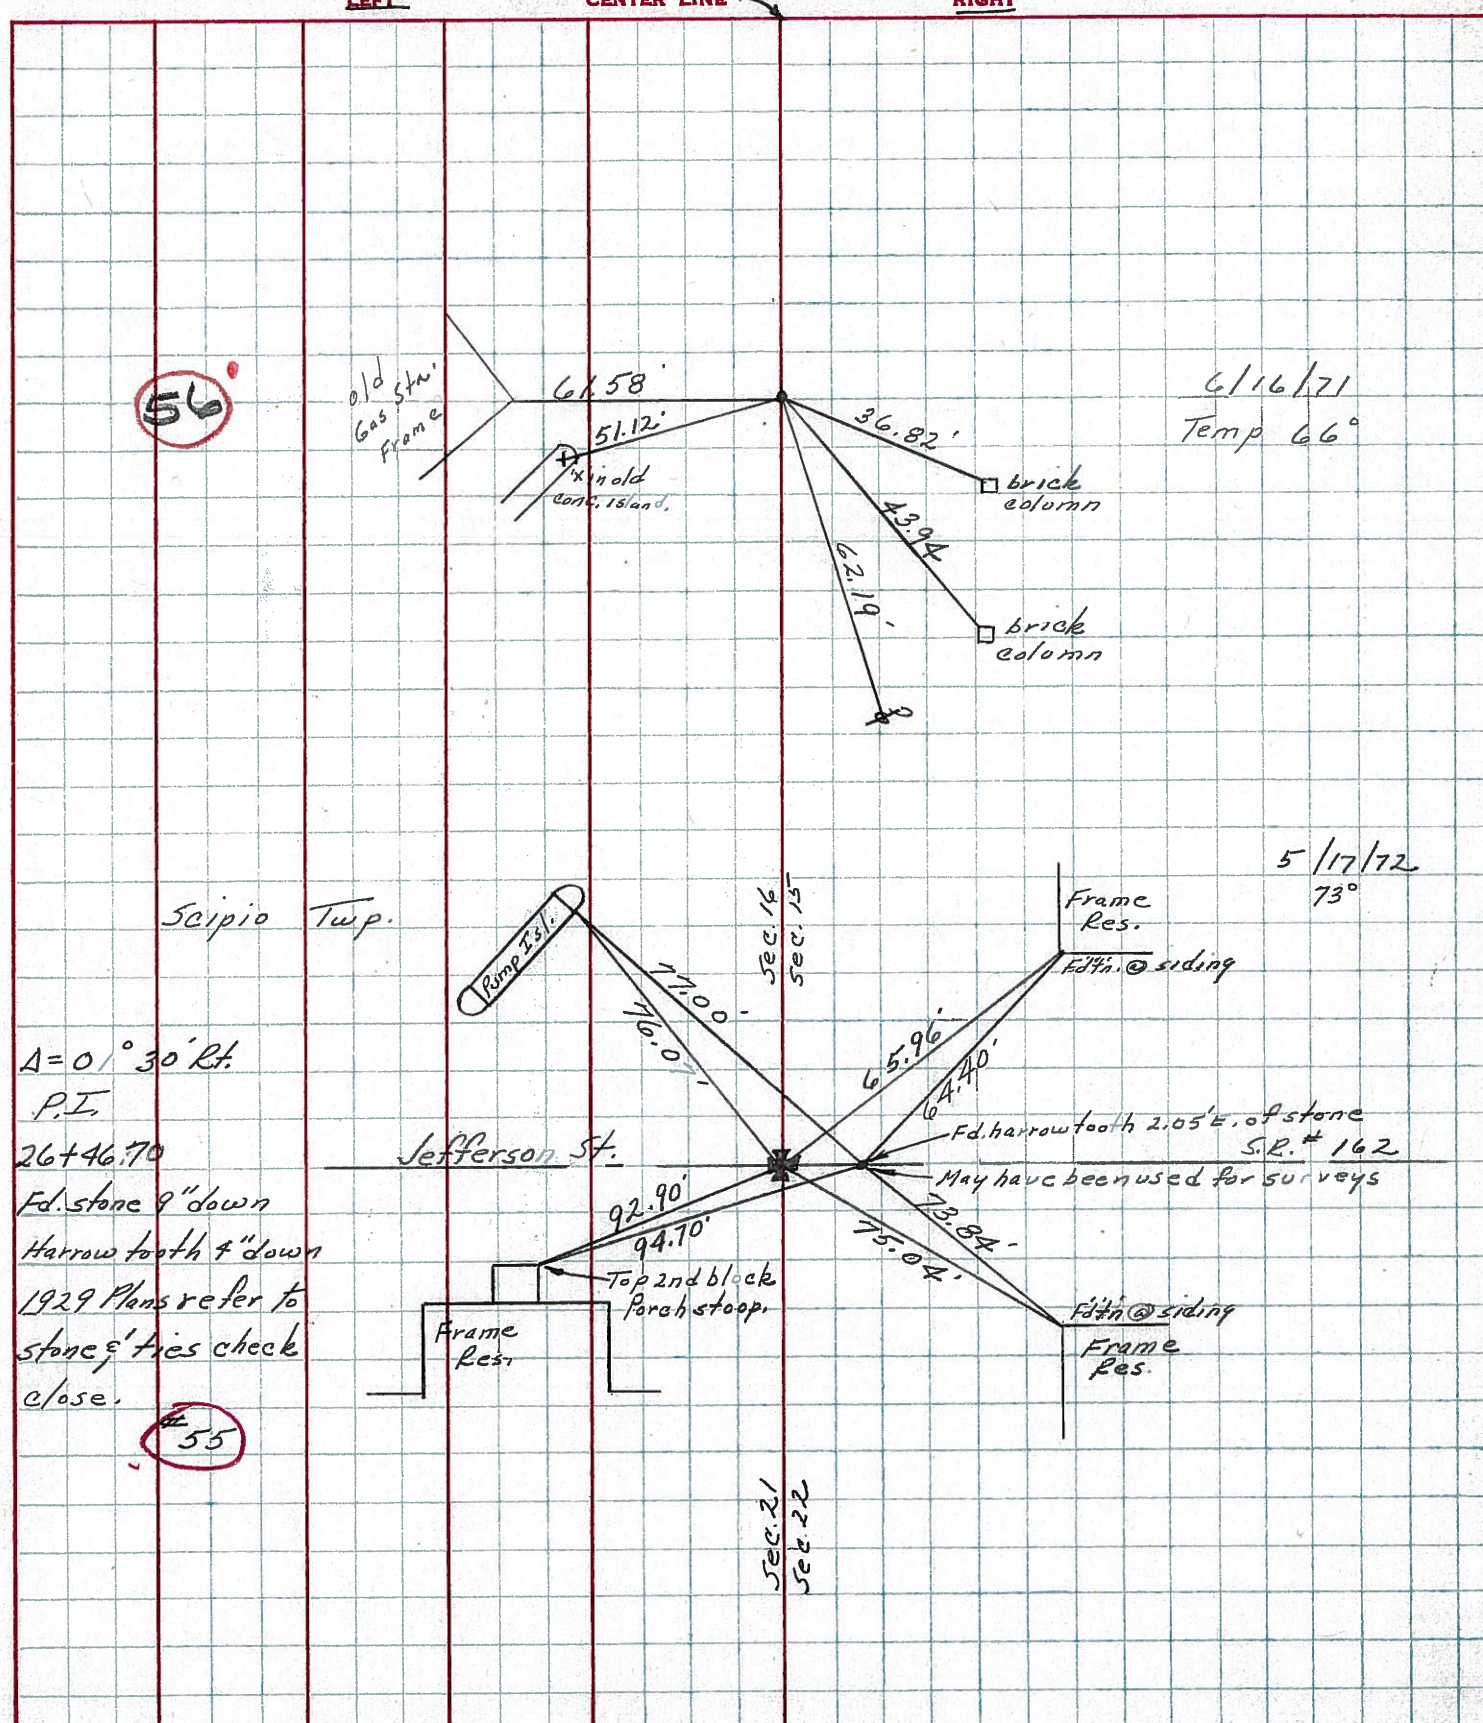 LEFT
CENTER LINE
RIGHT
56
old
Gas Stn.
Frame
61.58'
51.12'
"x" in old
conc. island.
36.82'
brick
column
43.94
brick
column
62.19'
6/16/71
Temp 66°
5/17/72
73°
Scipio Twp.
Pump Isl.
Sec. 16
Sec. 15
Frame
Res.
Fdtn. @ siding
77.00'
76.07'
65.96'
64.40'
Δ= 01°30' Rt.
P.I.
26+46.70
Fd. stone 9" down
Harrow tooth 4" down
1929 Plans refer to
stone & ties check
close.
#55
Jefferson St.
Fd. harrow tooth 2.05' E. of stone
S.R. # 162
May have been used for surveys
92.90'
94.70'
73.84'
75.04'
Top 2nd block
Porch stoop.
Frame
Res.
Fdtn @ siding
Frame
Res.
Sec. 21
Sec. 22